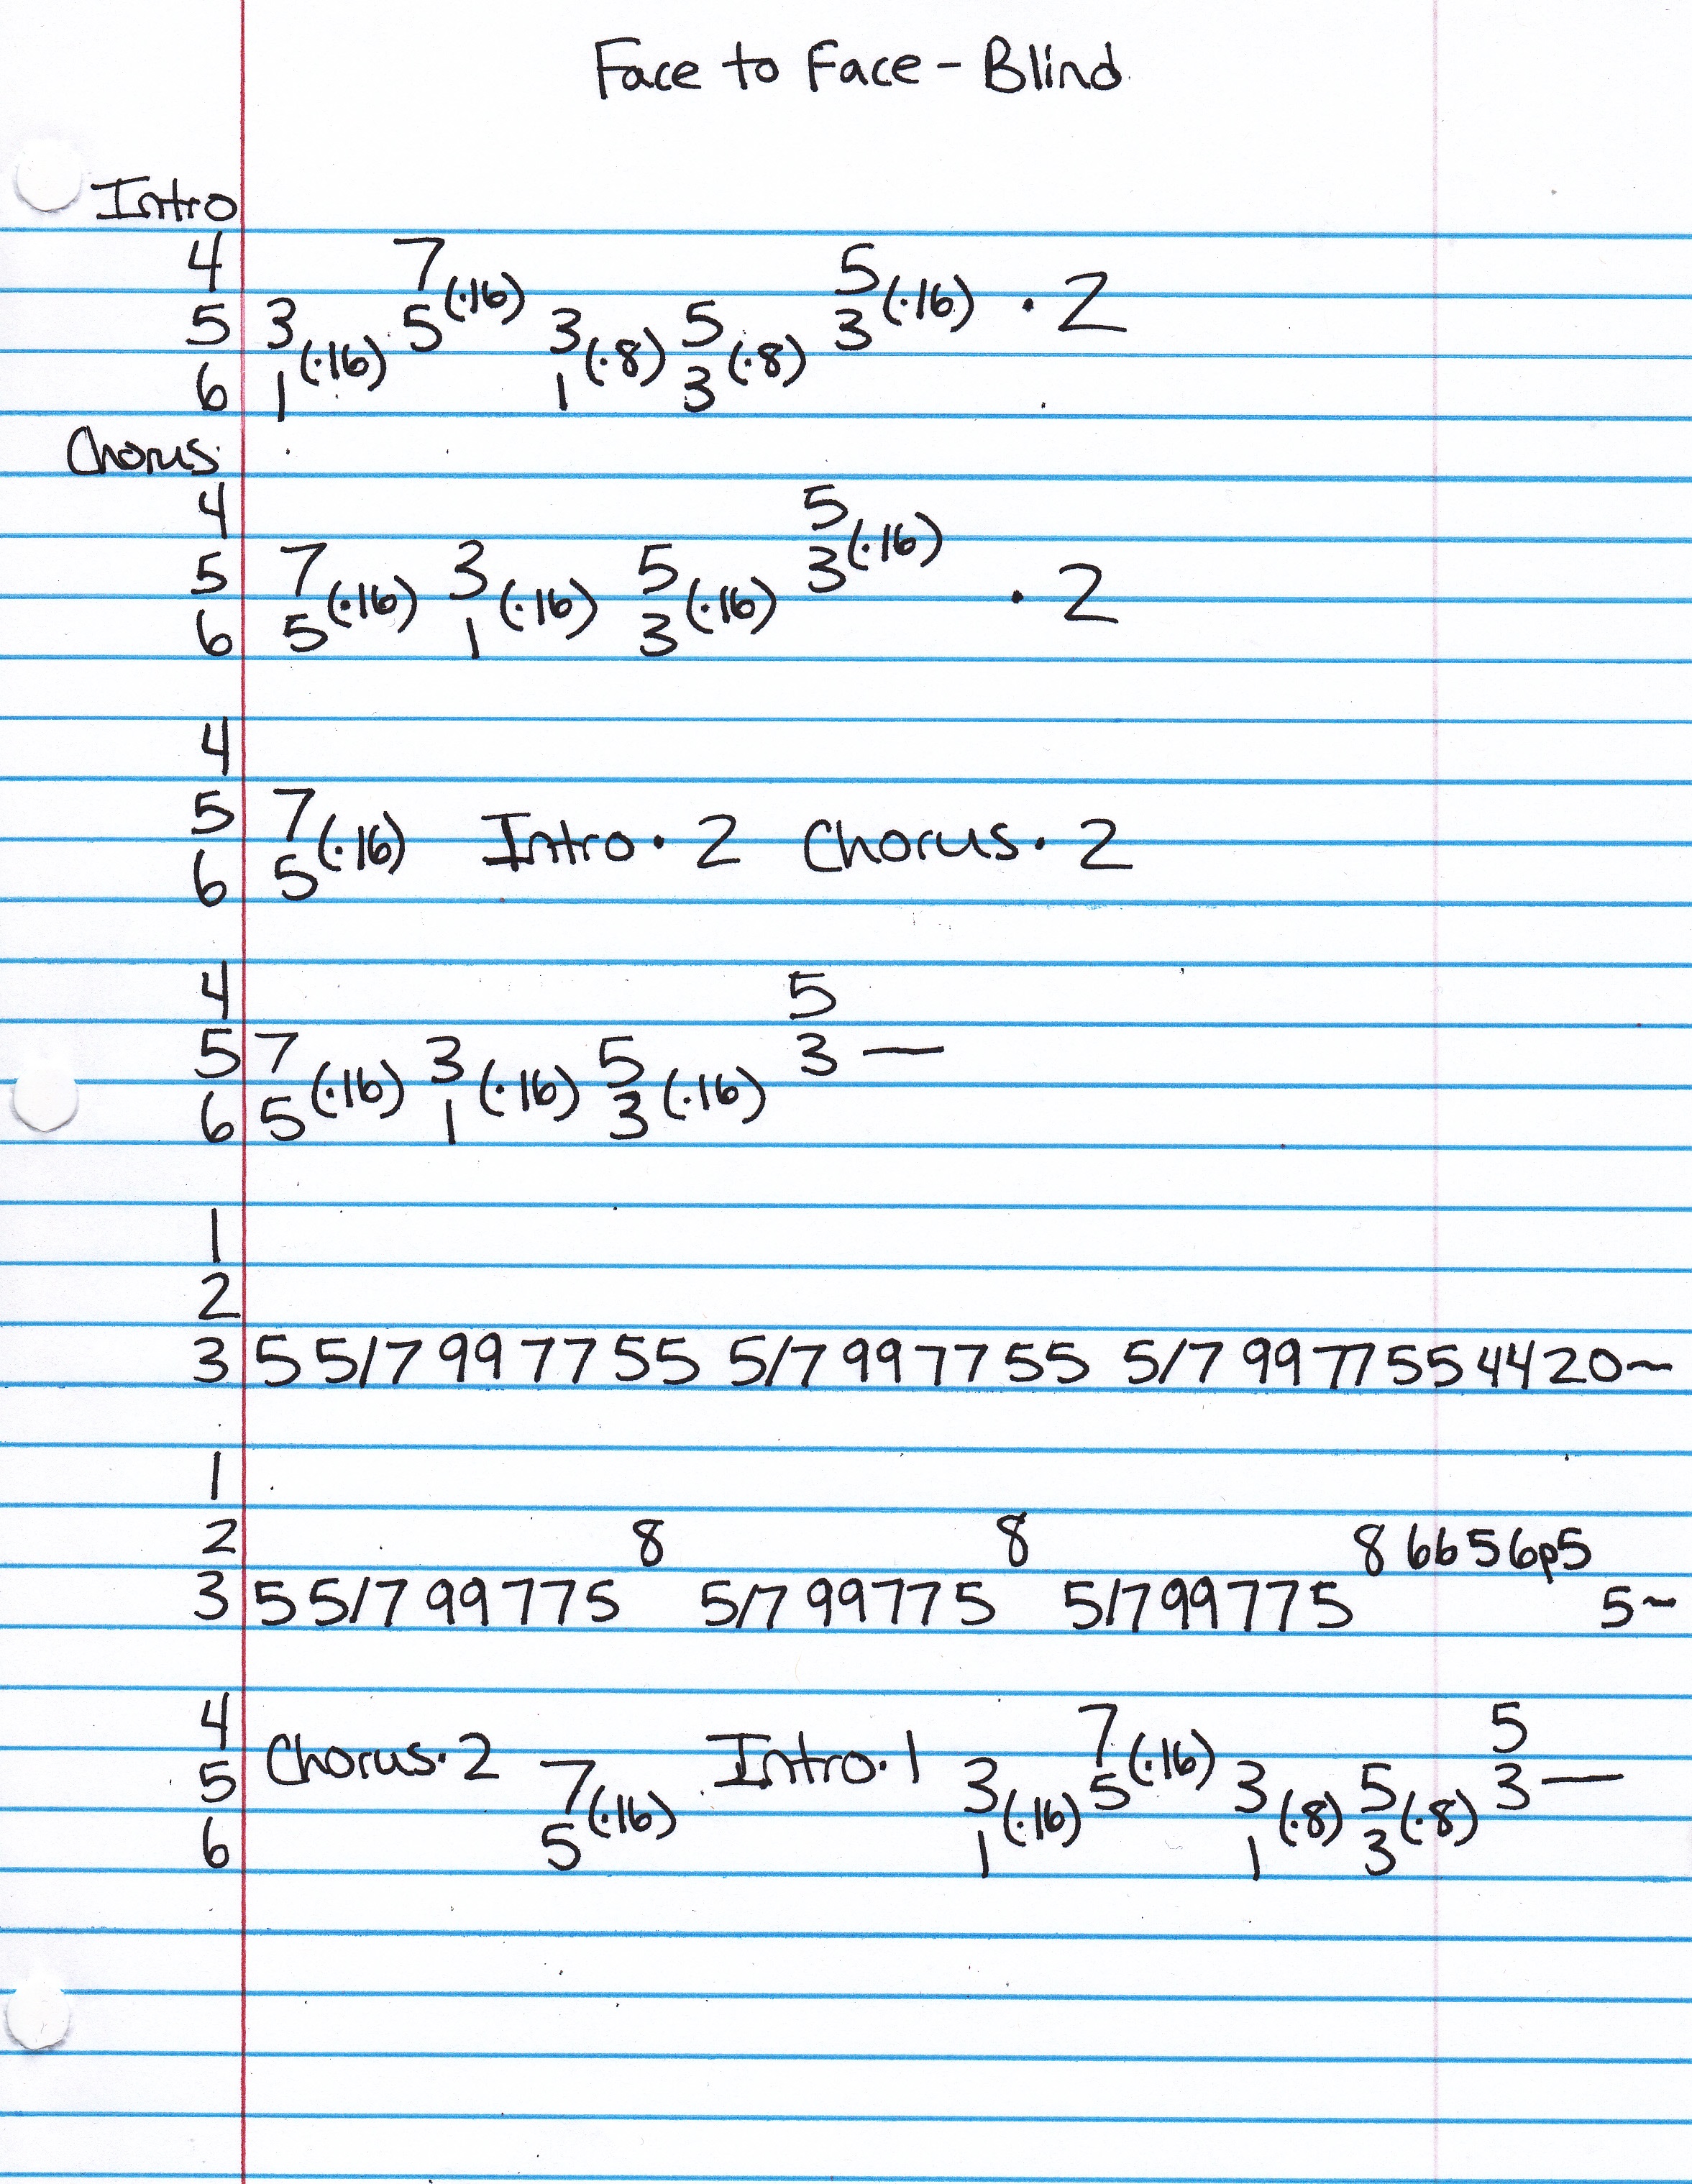 Face to Face - Blind
Intro
4 7 5
5 3 (·16) 5 (·16) 3 (·8) 5 (·8) 3 (·16) · 2
6 1 1 3
Chorus
4 5
5 7 (·16) 3 (·16) 5 (·16) 3 (·16) · 2
6 5 1 3
4
5 7 (·16) Intro · 2 Chorus · 2
6 5
4 5
5 7 (·16) 3 (·16) 5 (·16) 3 —
6 5 1 3
1
2
3 5 5/7 99 77 55 5/7 99 77 55 5/7 99 77 55 44 2 0~
1
2 8 8 8 6 6 5 6p5
3 5 5/7 99 77 5 5/7 99 77 5 5/7 99 77 5 5~
4 7 5
5 Chorus · 2 7 (·16) Intro · 1 3 (·16) 5 (·16) 3 (·8) 5 (·8) 3 —
6 5 1 1 3